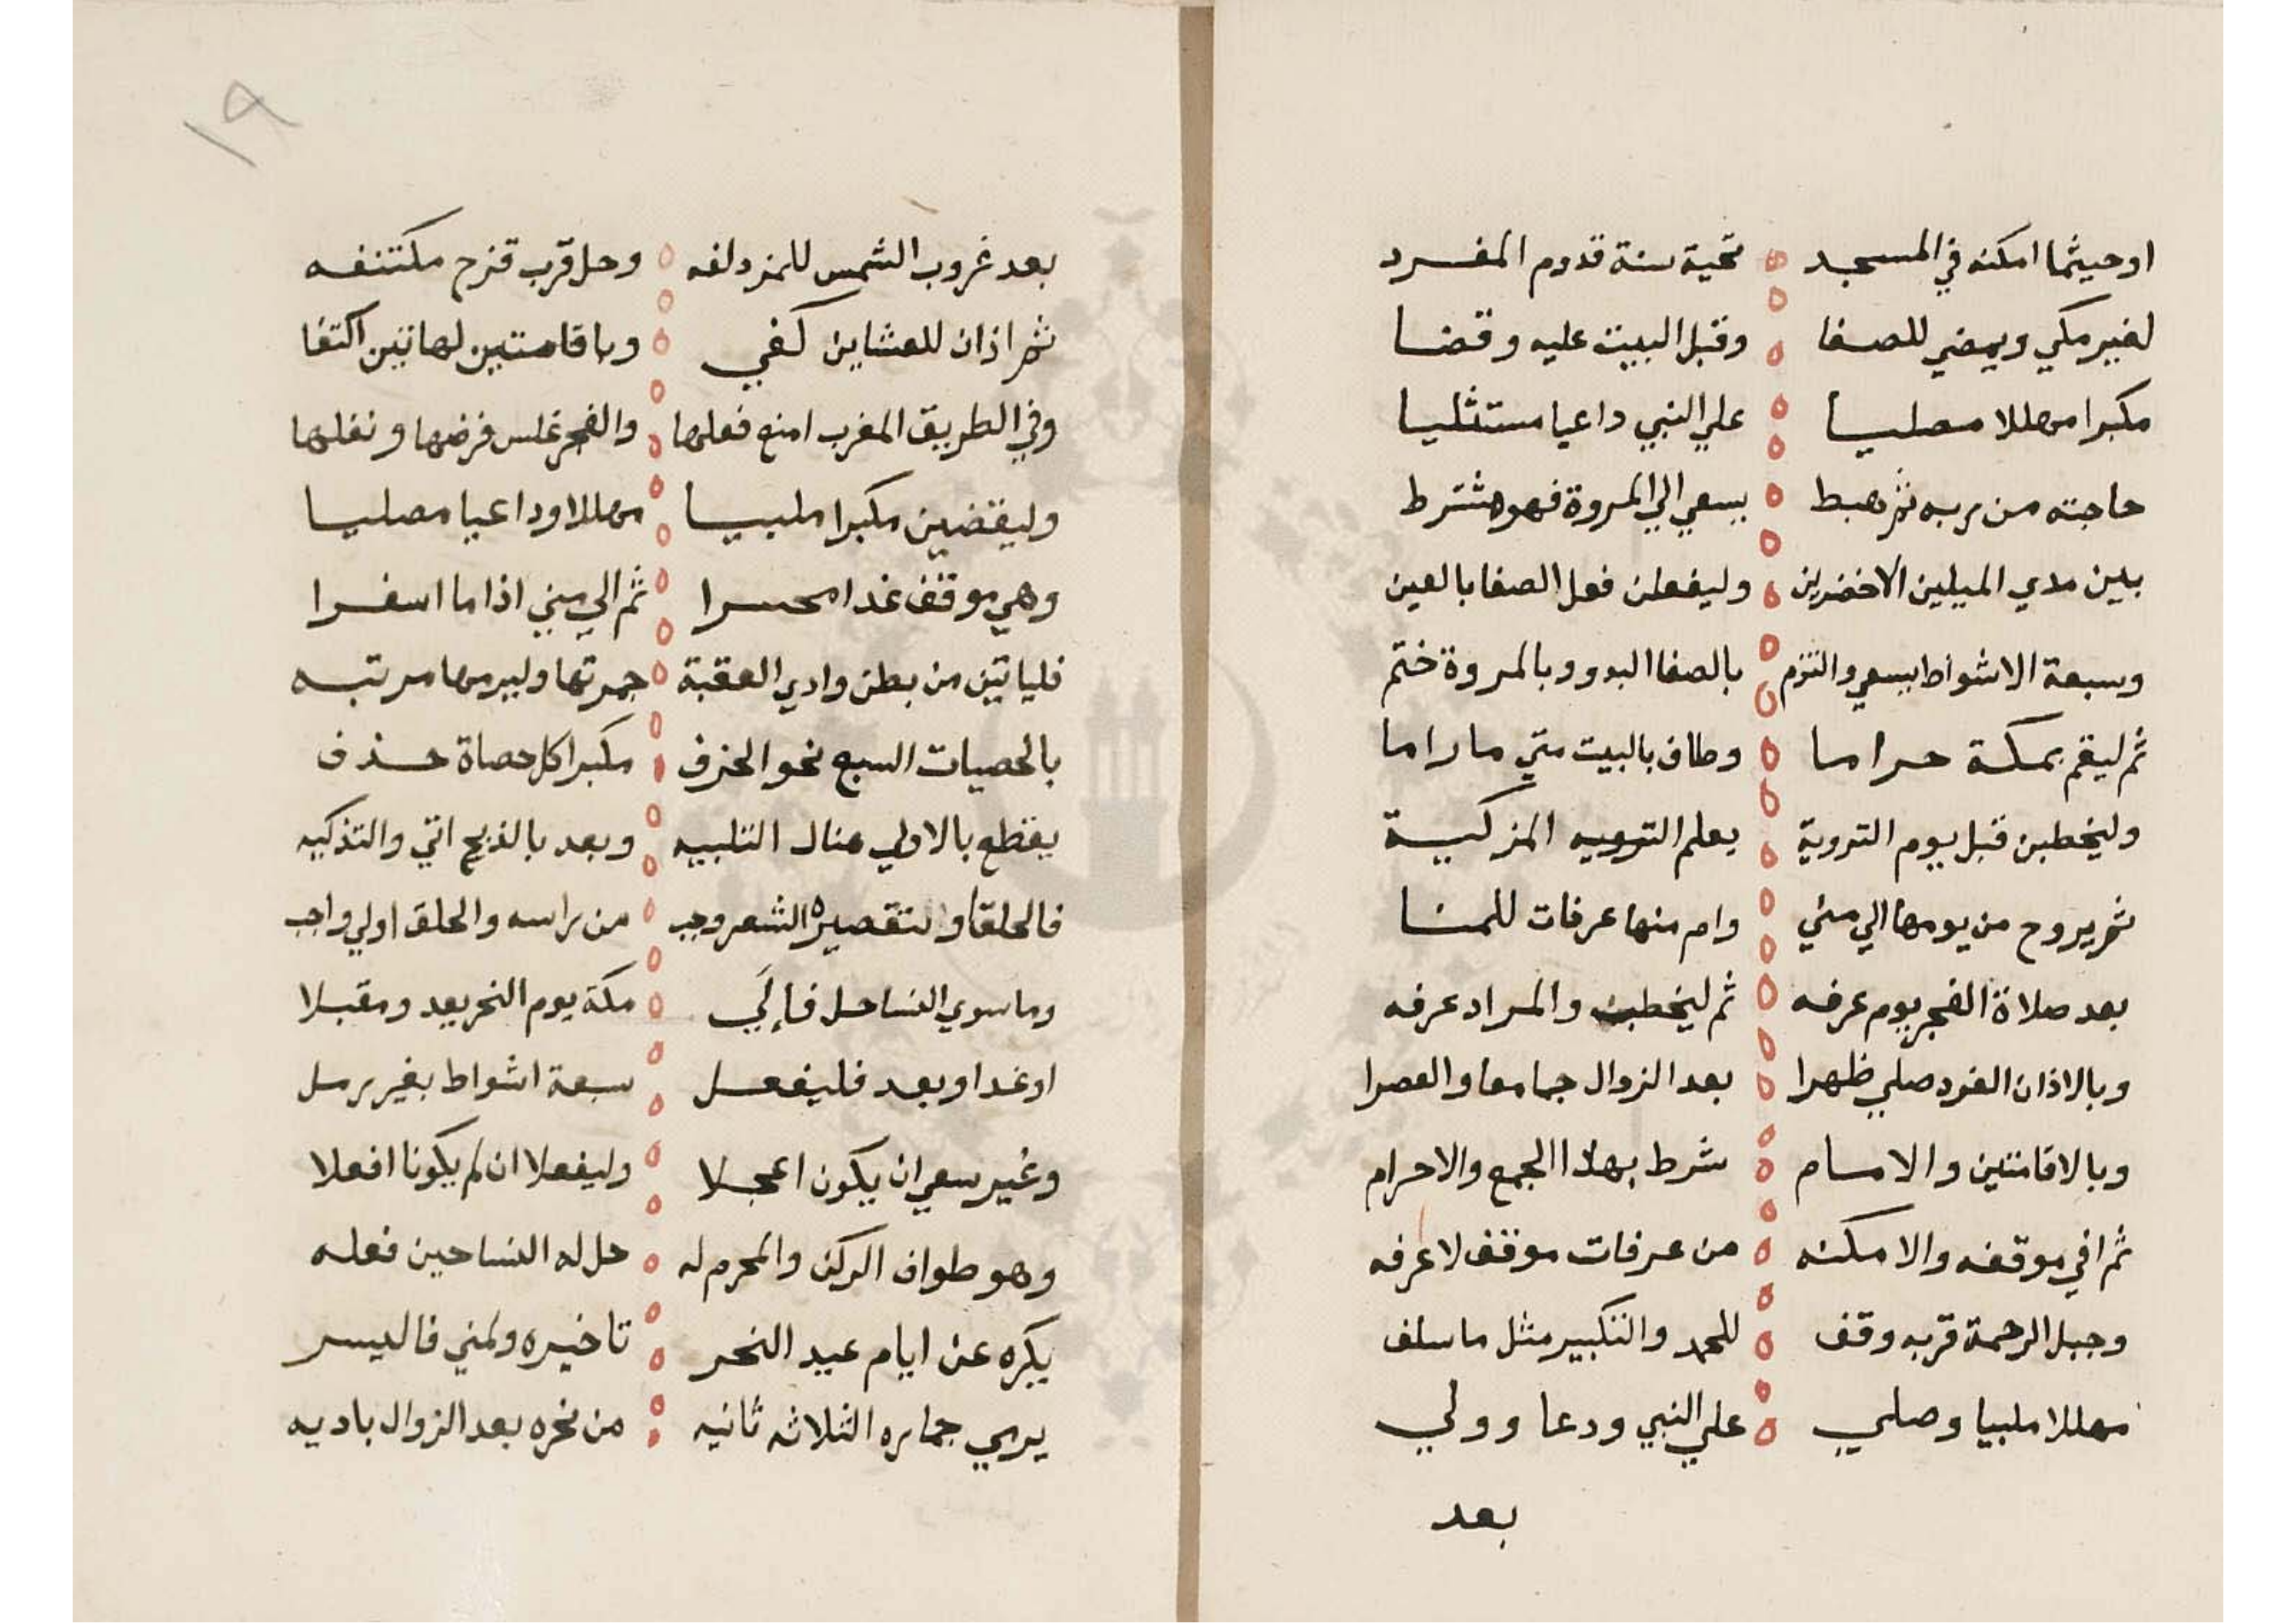 اوحيثما امكنه في المسجد تحية سنة قدوم المفرد
لغير مكي ويمضي للصفا وقبل البيت عليه وقفا
مكبرا مهللا مصليا علي النبي داعيا مستثليا
حاجته من ربه ثم هبط يسعي الي المروة فهو مشترط
بين مدي الميلين الاخضرين وليفعلن فعل الصفا بالعين
وسبعة الاشواط يسعي والتزم بالصفا البدو وبالمروة ختم
ثم ليقم بمكة حراما وطاف بالبيت متي ما راما
وليخطبن قبل يوم التروية يعلم الترويه المزكية
ثم يروح من يومها الي مني وام منها عرفات للمنا
بعد صلاة الفجر يوم عرفه ثم ليخطبن والمراد عرفه
وبالاذان الفرد صلي ظهرا بعد الزوال جامعا والعصرا
وبالاقامتين والامام شرط بهذا الجمع والاحرام
ثم افي موقفه والامكنه من عرفات موقف لا عرفه
وجبل الرحمة قربه وقف للحمد والتكبير مثل ما سلف
مهللا ملبيا وصلي علي النبي ودعا وولي
بعد
١٩
بعد غروب الشمس للمزدلفه وحل قرب قزح مكتنفه
ثم اذان للعشاين كفي وباقامتين لهاتين اكتفا
وفي الطريق المغرب امنع فعلها والفجر غلس فرضها ونفلها
وليقضين مكبرا ملبيا مهللا وداعيا مصليا
وهي موقف غدا محسرا ثم الي مني اذا ما اسفرا
فلياتين من بطن وادي العقبة جمرتها وليرمها مرتبه
بالحصيات السبع نحو الخزف مكبرا كل حصاة حذف
يقطع بالاولي هناك التلبيه وبعد بالذبح اتي والتذكيه
فالحلق او لتقصيره الشعر وجب من راسه والحلق اولي واجب
وما سوي النسا حل فإلي مكة يوم النحر يعد ومقبلا
او غدا او بعد فليفعل سبعة اشواط بغير رمل
وغير سعي ان يكون اعجلا وليفعلا ان لم يكونا افعلا
وهو طواف الركن والمحرم له حل له النسا حين فعله
يكره عن ايام عيد النحر تاخيره ولمني فاليسر
يرمي جماره الثلاثه ثانيه من نحره بعد الزوال باديه